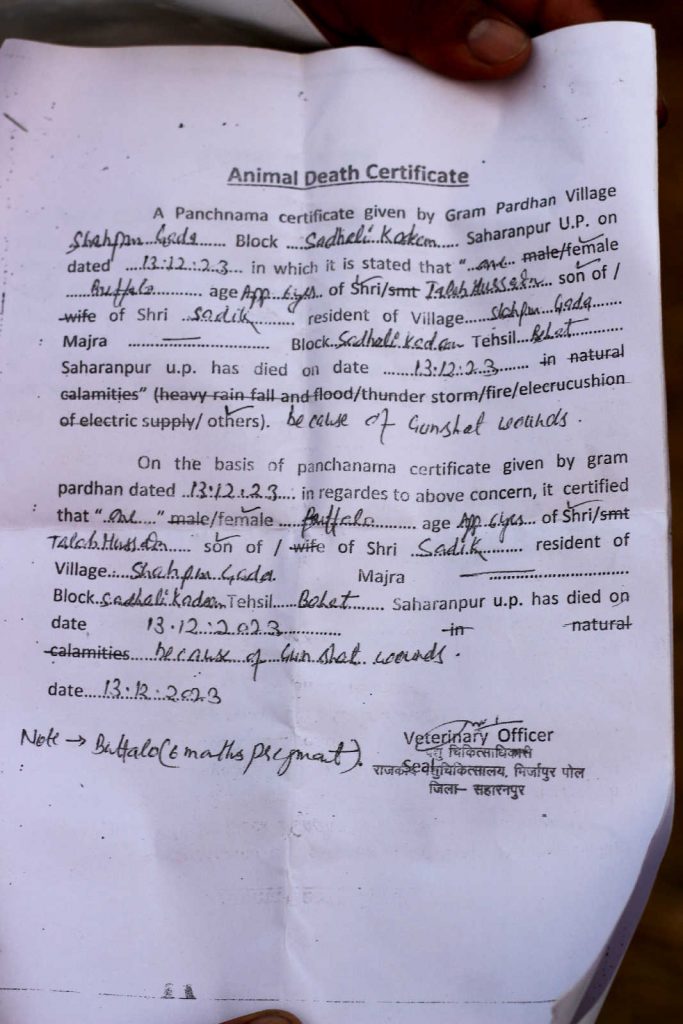 Animal Death Certificate
A Panchnama certificate given by Gram Pardhan Village
Shahpur Gada...... Block ....Sadhali Kadeem.... Saharanpur U.P. on
dated ....13.12.23.... in which it is stated that "..one.. male/female
......Buffalo........ age App 6 yrs.. of Shri/smt Talab Hussain... son of /
wife of Shri ..Sadik.......... resident of Village.....Shahpur Gada......
Majra ............— Block Sadhali Kadeem Tehsil....Behat..........
Saharanpur u.p. has died on date ......13.12.23........ in natural
calamities" (heavy rain fall and flood/thunder storm/fire/elecrucushion
of electric supply/ others). because of Gunshot wounds.
On the basis of panchanama certificate given by gram
pardhan dated .13.12.23... in regardes to above concern, it certified
that "..one..." male/female ....Buffalo........ age App 6 yrs... of Shri/smt
Talab Hussain...... son of / wife of Shri ..Sadik.......... resident of
Village....Shahpur Gada. Majra —..........................
Block.Sadhali Kadeem Tehsil....Behat........ Saharanpur u.p. has died on
date 13.12.2023............. in natural
calamities because of Gun shot wounds.
date....13.12.2023
Note → Buffalo (6 months pregnant).
Veterinary Officer
पशु चिकित्साधिकारी
Seal
राजकीय पशुचिकित्सालय, मिर्जापुर पोल
जिला– सहारनपुर